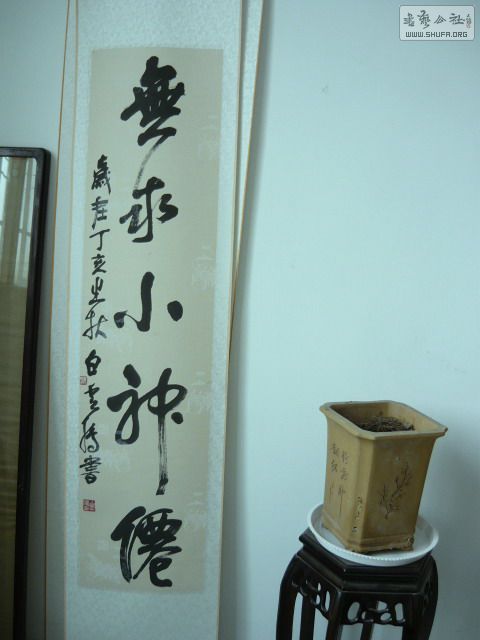 無求小神僊
歲在丁亥之秋白雲騰書
書藝公社
WWW.SHUFA.ORG